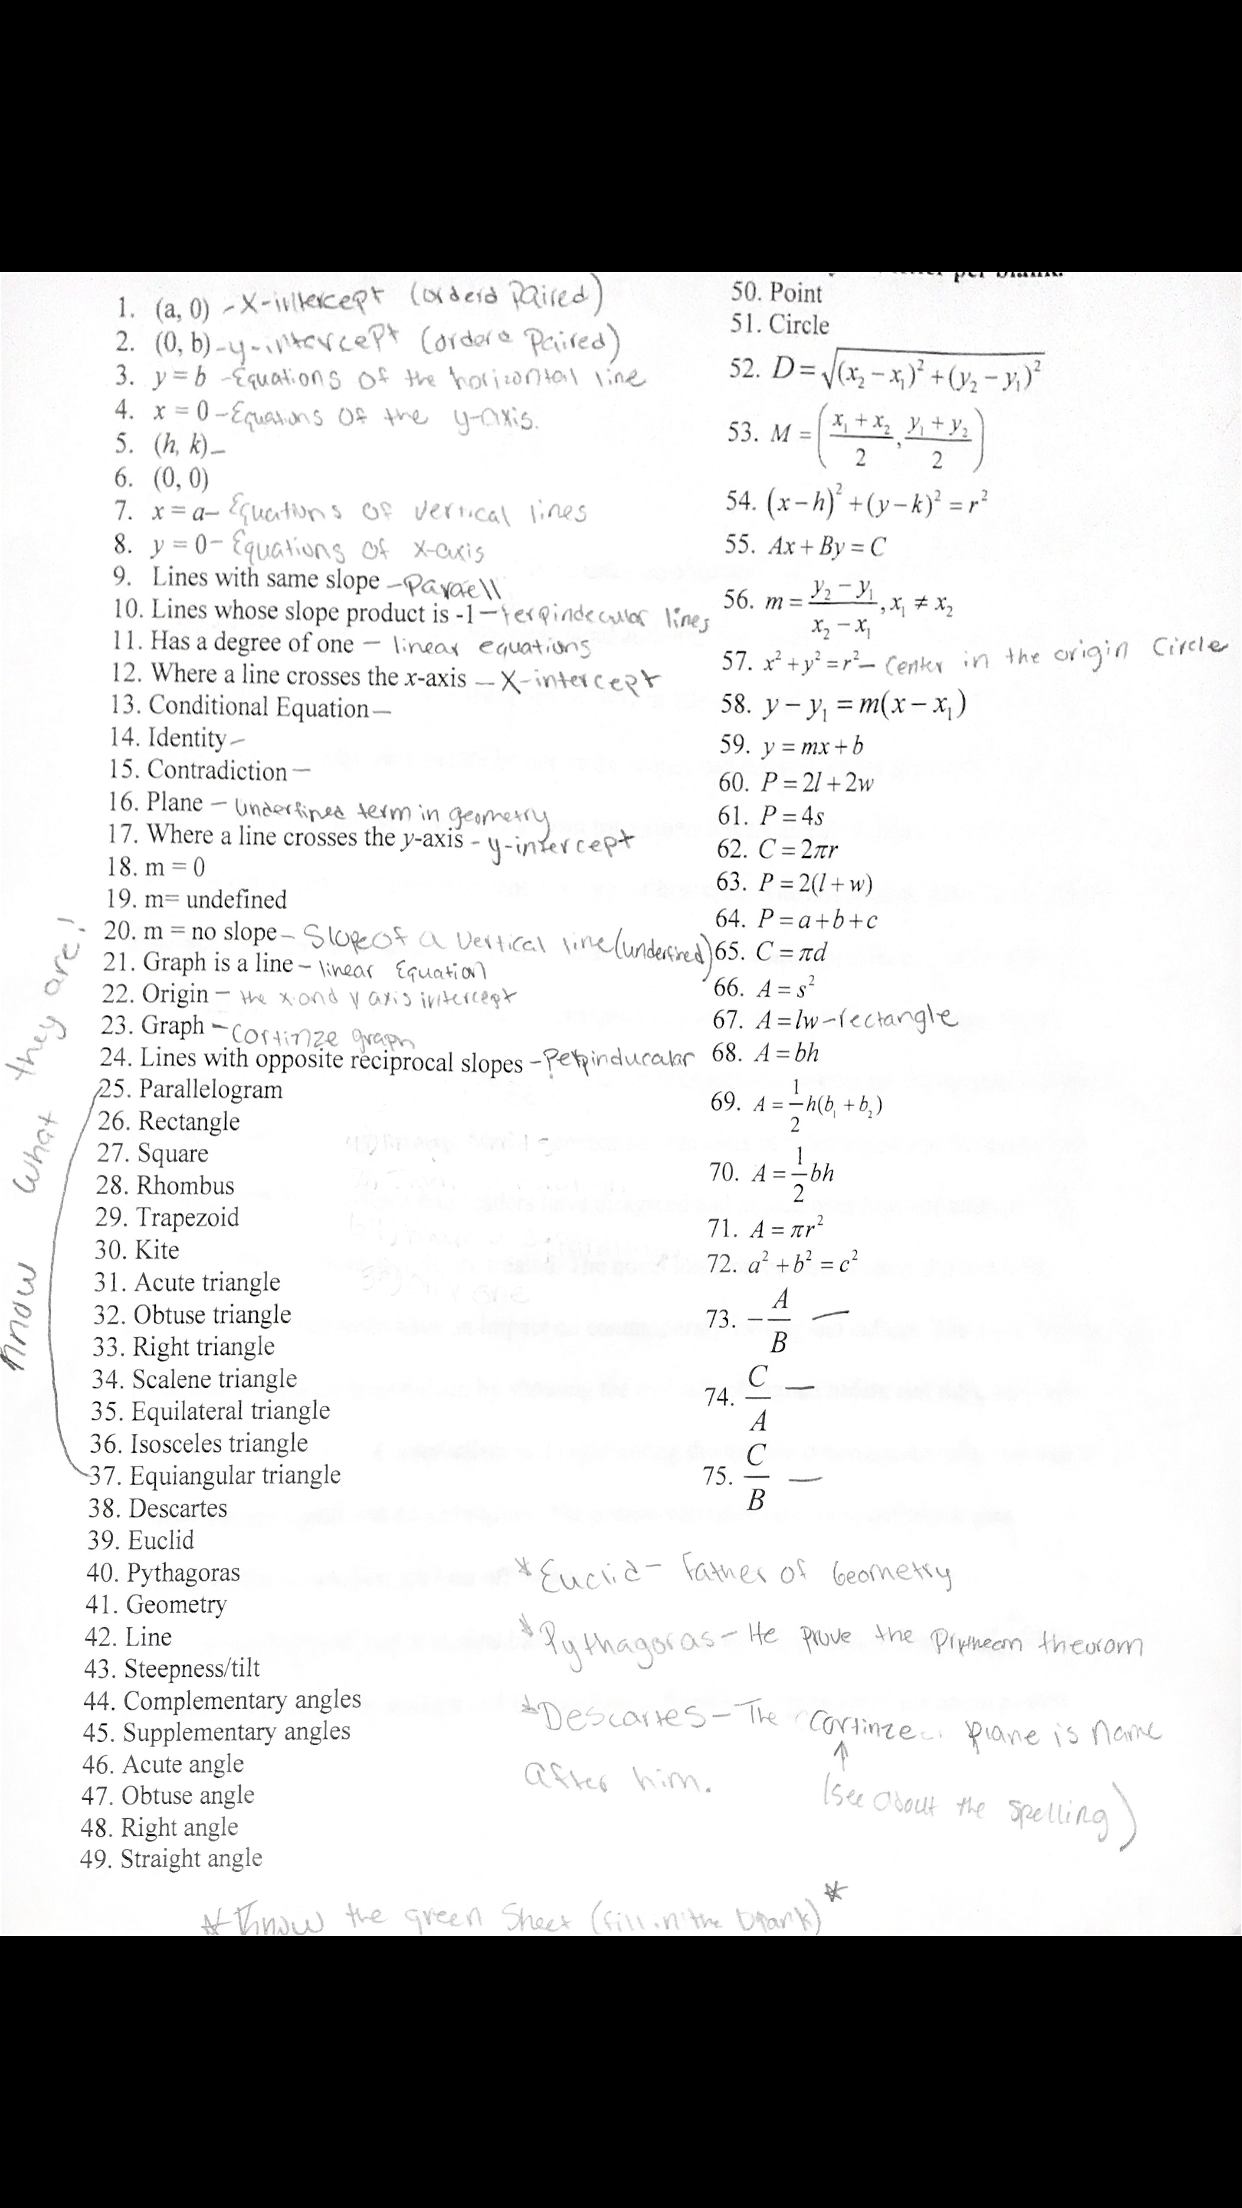 per blank.
1. (a, 0) - X-intercept (orderd Paired)
2. (0, b) - y-intercept (ordere Paired)
3. y = b - Equations of the horizontal line
4. x = 0 - Equations of the y-axis.
5. (h, k) -
6. (0, 0)
7. x = a - Equations of vertical lines
8. y = 0 - Equations of x-axis
9. Lines with same slope -
10. Lines whose slope product is -1 - lines
11. Has a degree of one - linear equations
12. Where a line crosses the x-axis - X-intercept
13. Conditional Equation -
14. Identity -
15. Contradiction -
16. Plane - term in geometry
17. Where a line crosses the y-axis - y-intercept
18. m = 0
19. m= undefined
20. m = no slope - Slope of a vertical line (undefined)
21. Graph is a line - linear Equation
22. Origin - the x and y axis intercept
23. Graph - Cortinze graph
24. Lines with opposite reciprocal slopes - Perpinducalar
Know what they are!
25. Parallelogram
26. Rectangle
27. Square
28. Rhombus
29. Trapezoid
30. Kite
31. Acute triangle
32. Obtuse triangle
33. Right triangle
34. Scalene triangle
35. Equilateral triangle
36. Isosceles triangle
37. Equiangular triangle
38. Descartes
39. Euclid
40. Pythagoras
41. Geometry
42. Line
43. Steepness/tilt
44. Complementary angles
45. Supplementary angles
46. Acute angle
47. Obtuse angle
48. Right angle
49. Straight angle
50. Point
51. Circle
52. D = √((x₂ − x₁)² + (y₂ − y₁)²)
53. M = ((x₁ + x₂)/2, (y₁ + y₂)/2)
54. (x − h)² + (y − k)² = r²
55. Ax + By = C
56. m = (y₂ − y₁)/(x₂ − x₁), x₁ ≠ x₂
57. x² + y² = r² - Center in the origin Circle
58. y − y₁ = m(x − x₁)
59. y = mx + b
60. P = 2l + 2w
61. P = 4s
62. C = 2πr
63. P = 2(l + w)
64. P = a + b + c
65. C = πd
66. A = s²
67. A = lw - rectangle
68. A = bh
69. A = 1/2 h(b₁ + b₂)
70. A = 1/2 bh
71. A = πr²
72. a² + b² = c²
73. − A/B —
74. C/A —
75. C/B —
* Euclid - Father of Geometry
* Pythagoras - He prove the theurom
* Descartes - The Cortinze plane is name
after him.
(see about the spelling)
* Know the green Sheet (fill in the blank) *